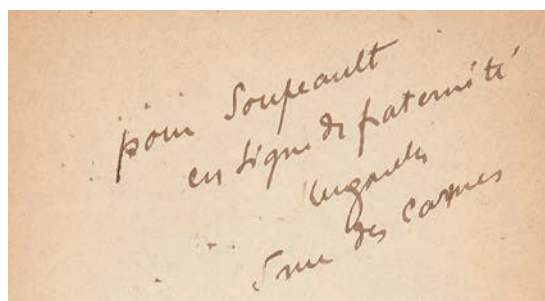 pour Soupeault
en signe de fraternité
5 rue des Carmes